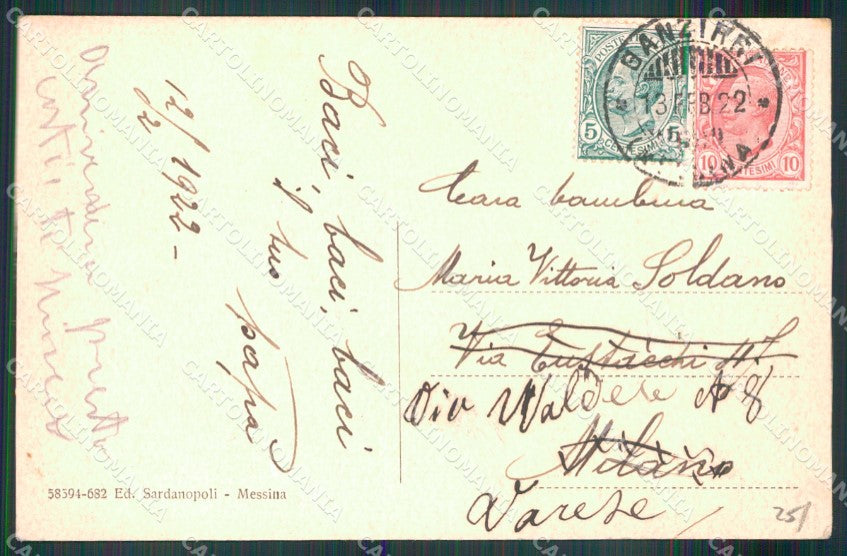 12/1922 -
2
Baci, baci, baci
il tuo papà
GANZIRRI
13 FEB 22
MESSINA
POSTE
5 5
CENTESIMI
10 10
CENTESIMI
Cara bambina
Maria Vittoria Soldano
Via Eustacchi
Via Valdese N 8
Milano
Varese
58594-682 Ed. Sardanopoli - Messina
25/
CARTOLINOMANIA